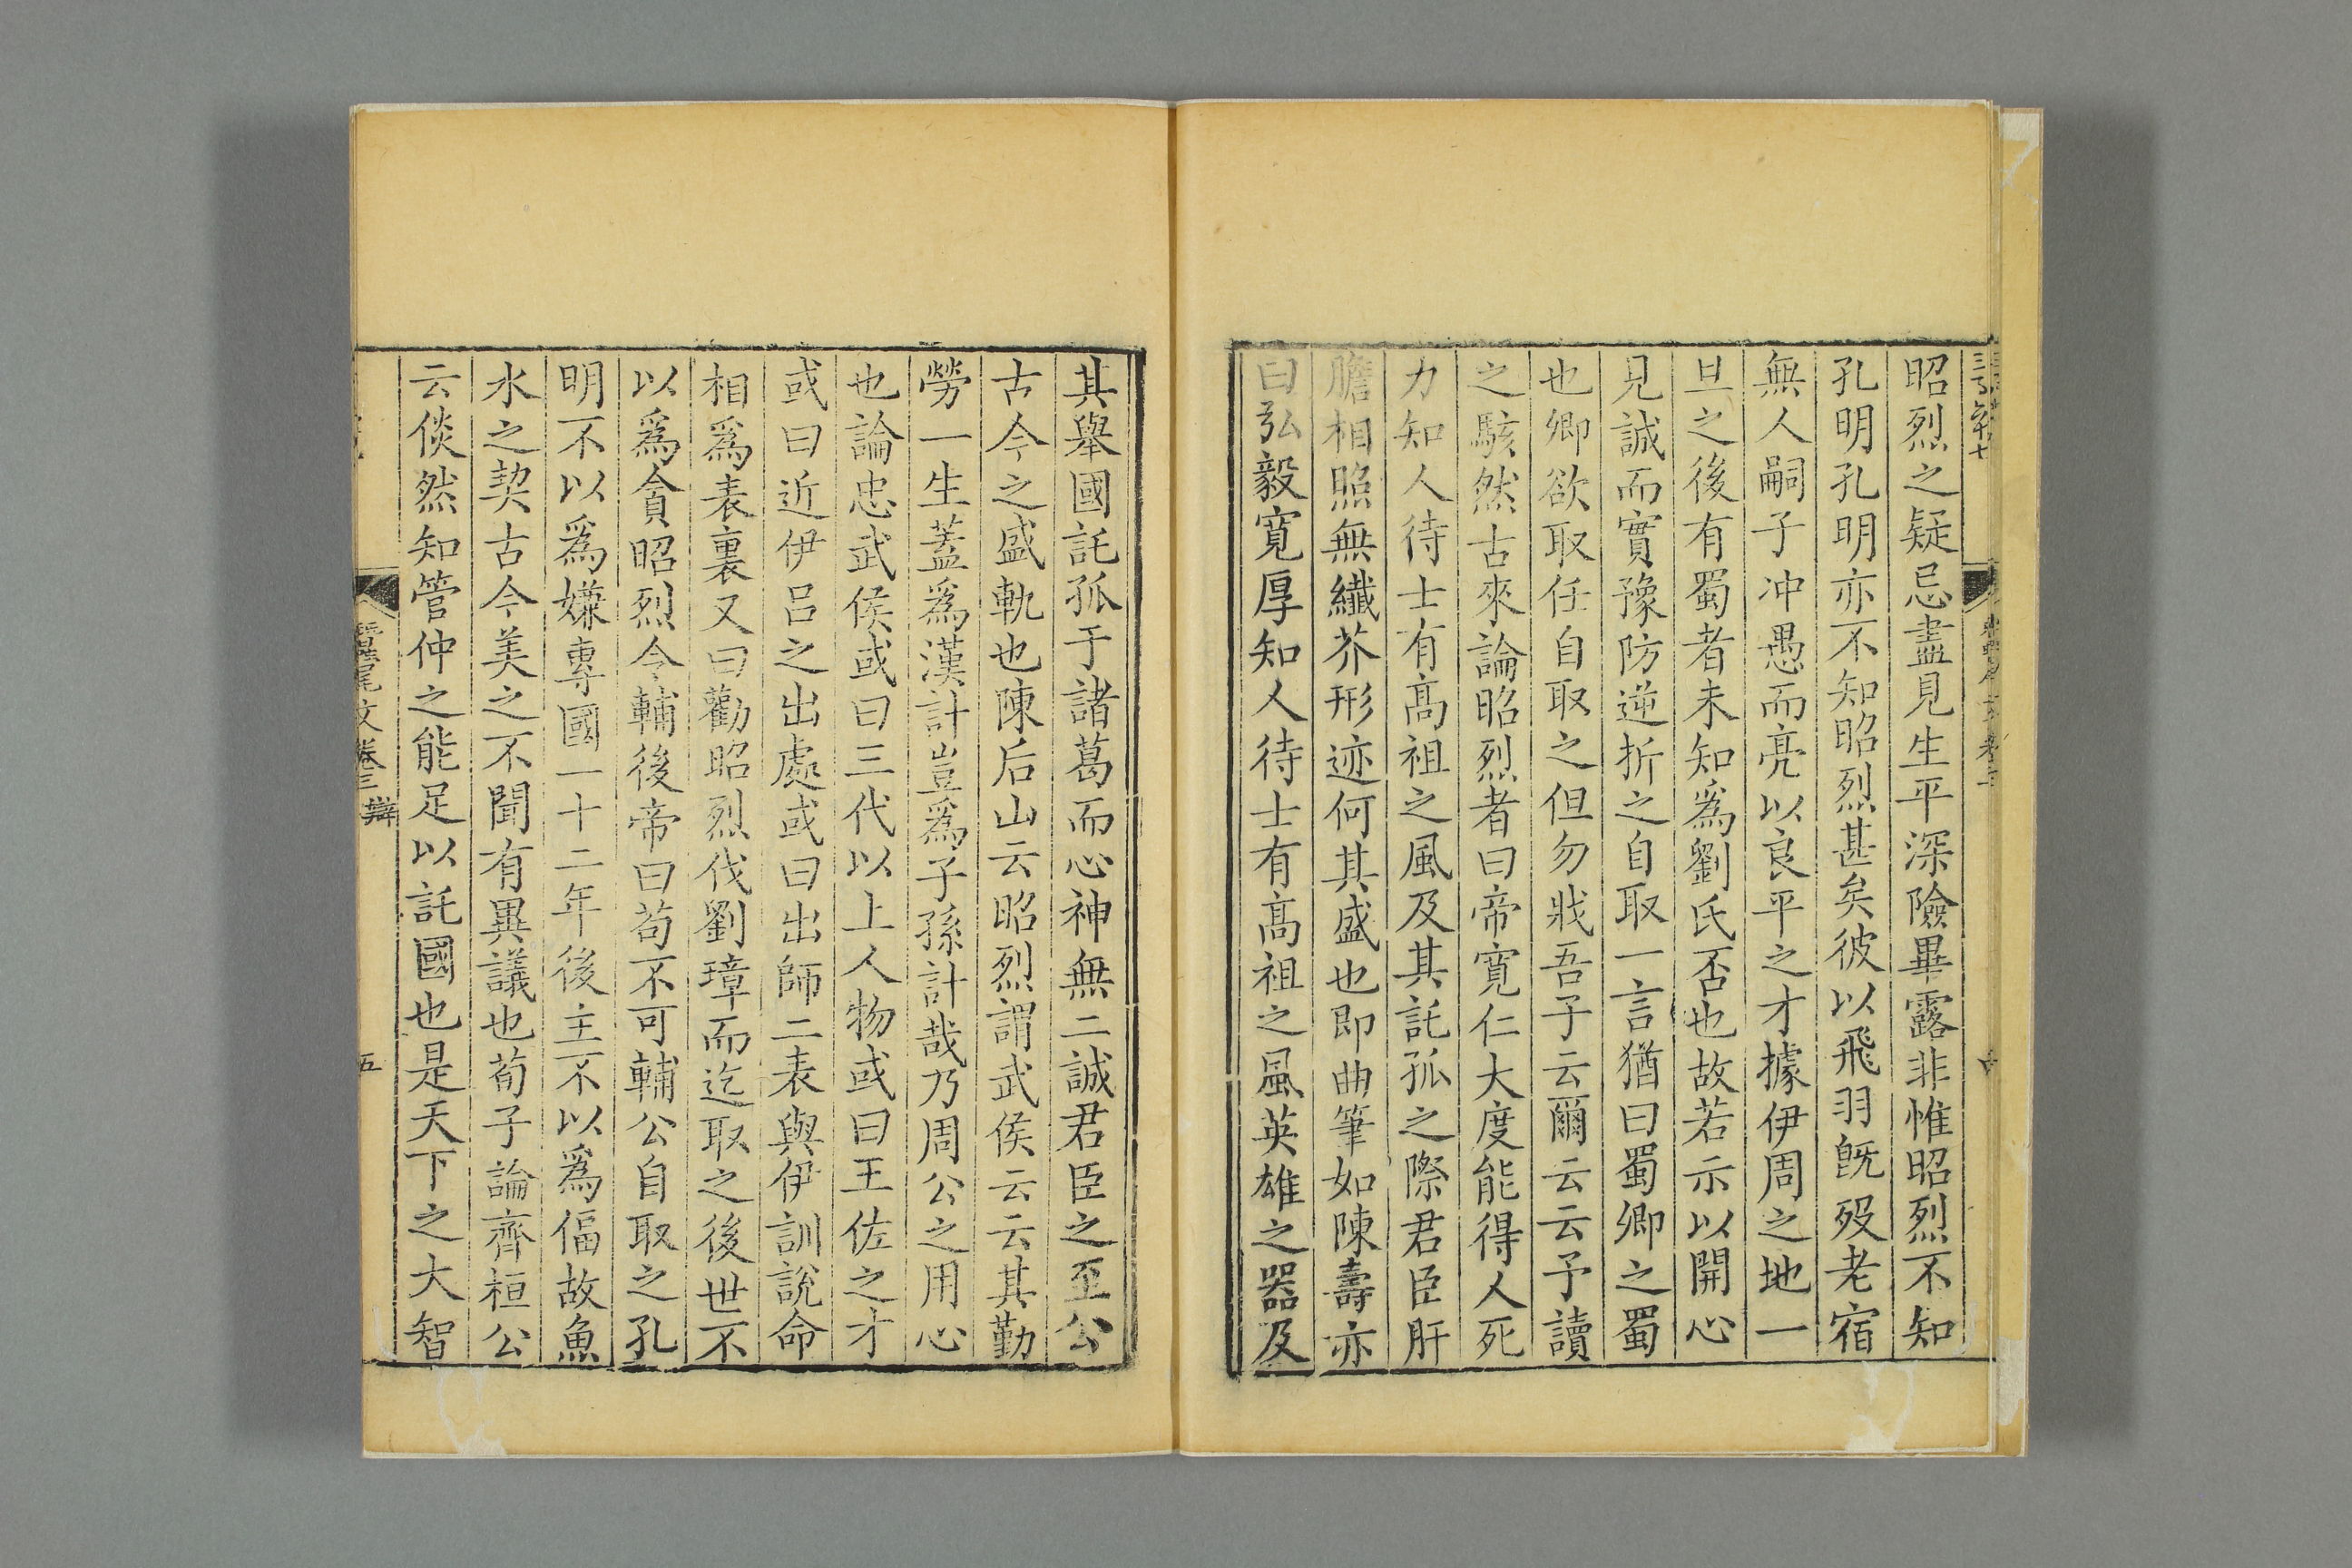 昭烈之疑忌盡見生平深險畢露非惟昭烈不知
孔明孔明亦不知昭烈甚矣彼以飛羽旣歿老宿
無人嗣子冲愚而亮以良平之才據伊周之地一
旦之後有蜀者未知爲劉氏否也故若示以開心
見誠而實豫防逆折之自取一言猶曰蜀卿之蜀
也卿欲取任自取之但勿戕吾子云爾云云予讀
之駭然古來論昭烈者曰帝寬仁大度能得人死
力知人待士有髙祖之風及其託孤之際君臣肝
膽相照無纖芥形迹何其盛也即曲筆如陳壽亦
曰弘毅寬厚知人待士有髙祖之風英雄之器及
其舉國託孤于諸葛而心神無二誠君臣之至公
古今之盛軌也陳后山云昭烈謂武侯云云其勤
勞一生蓋爲漢計豈爲子孫計哉乃周公之用心
也論忠武侯或曰三代以上人物或曰王佐之才
或曰近伊呂之出處或曰出師二表與伊訓說命
相爲表裏又曰勸昭烈伐劉璋而迄取之後世不
以爲貪昭烈令輔後帝曰苟不可輔公自取之孔
明不以爲嫌專國一十二年後主不以爲偪故魚
水之契古今美之不聞有異議也荀子論齊桓公
云倓然知管仲之能足以託國也是天下之大智
蠶尾文卷三 辯
五